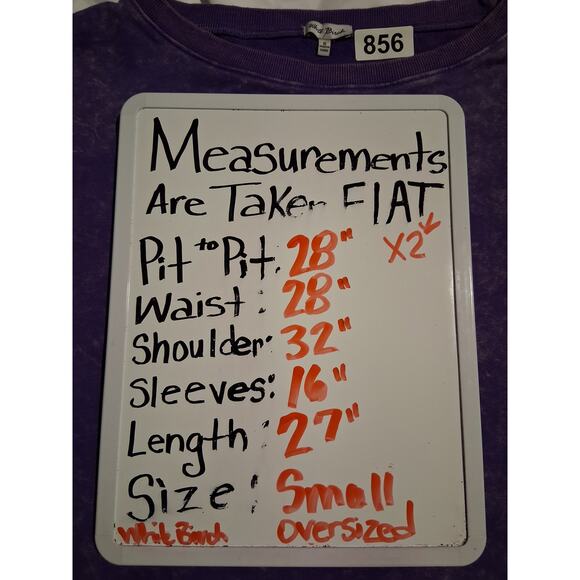 White Birch
S
856
Measurements
Are Taken FlAT
Pit to Pit: 28" X2
Waist: 28"
Shoulder: 32"
Sleeves: 16"
Length: 27"
Size: Small
White Birch oversized